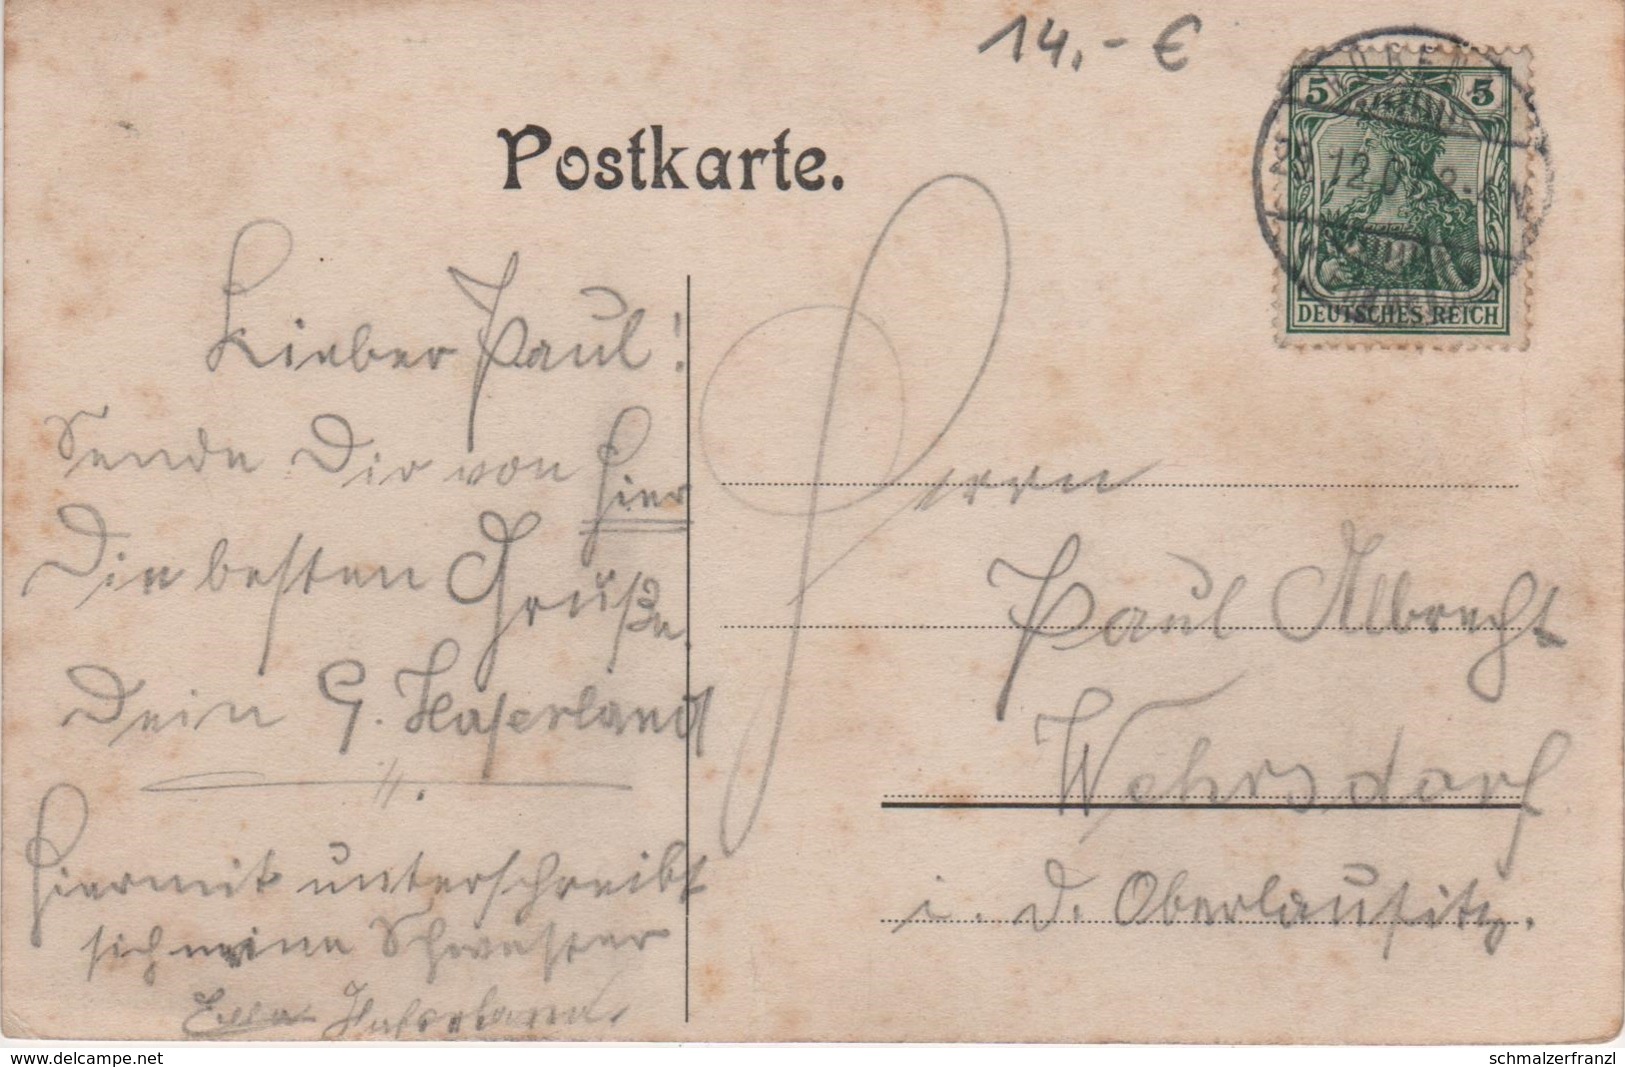 14,- €
Postkarte.
5 5
12.0
DEUTSCHES REICH
Lieber Paul!
Sende Dir von hier
Die besten Grüße.
Dein G. Haferland
Hiermit unterschreibt
sich meine Schwester
Herrn
Paul Albrecht
Wehrsdorf
i. d. Oberlausitz.
www.delcampe.net
schmalzerfranzl